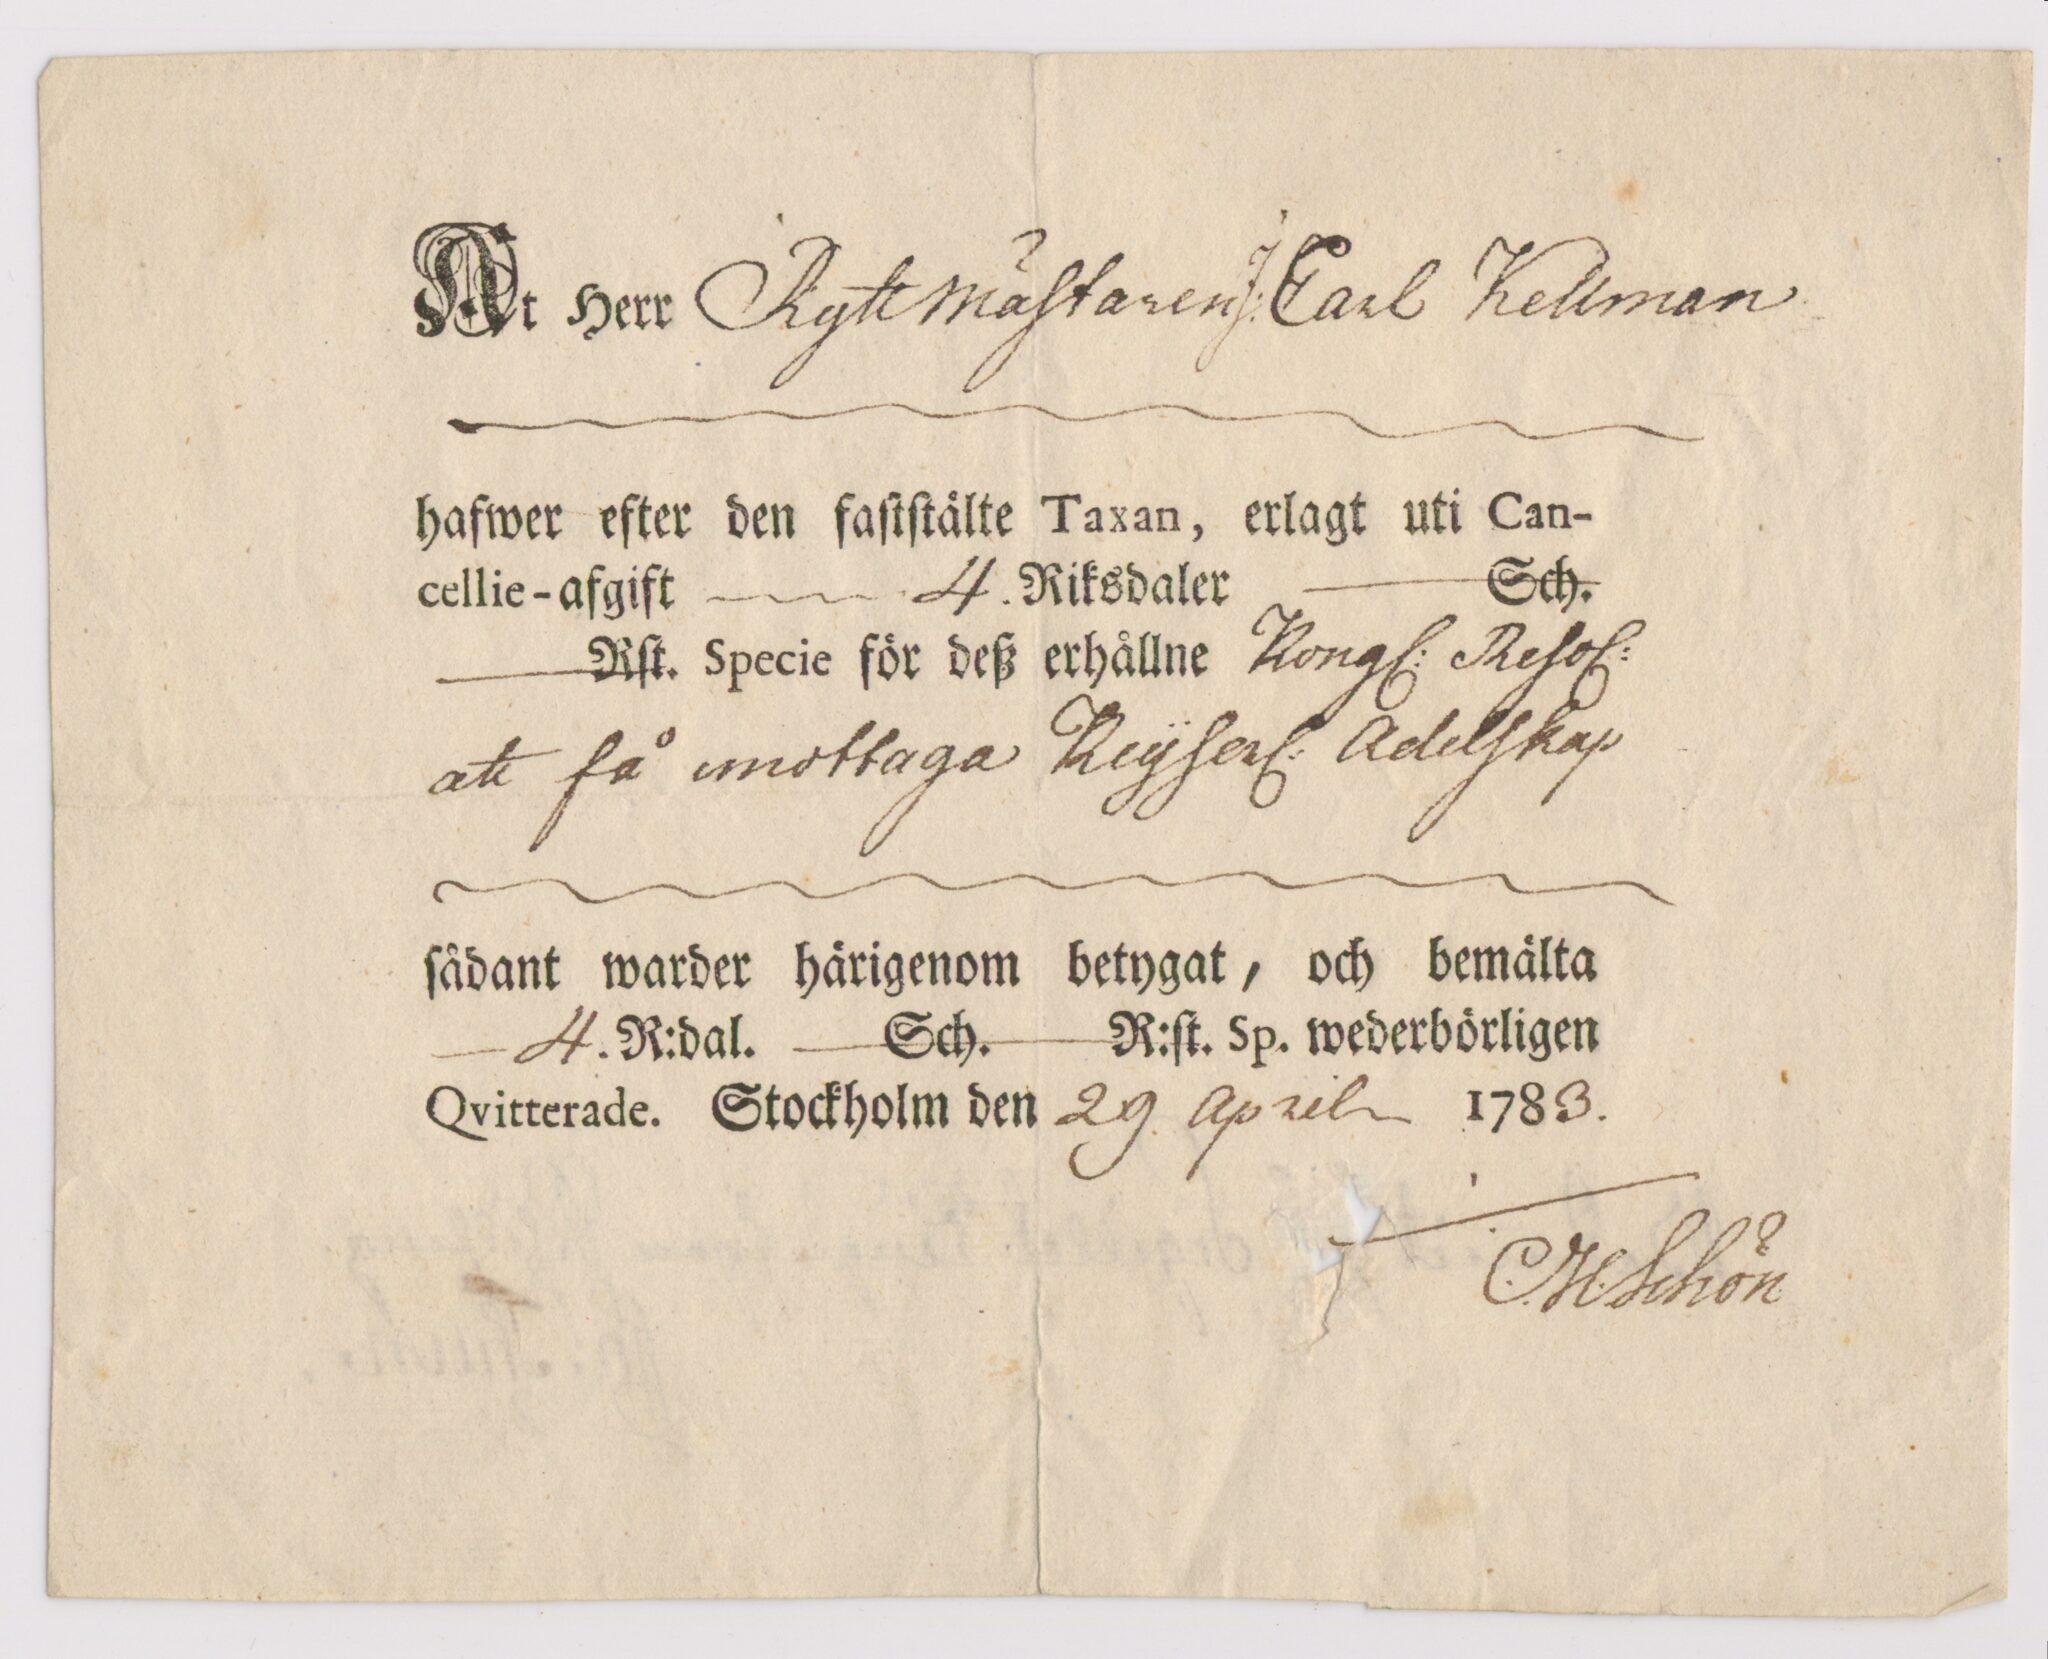 At Herr Rytt mästaren J: Carl Kellman
hafwer efter den faststälte Taxan, erlagt uti Can-
cellie-afgift 4. Riksdaler Sch.
Rst. Specie för deß erhållne Kongl: Resol:
att få mottaga Keÿserl: Adelskap
sådant warder härigenom betygat, och bemälta
4. R:dal. Sch. R:st. Sp. wederbörligen
Qvitterade. Stockholm den 29 April 1783.
C.H. Schön